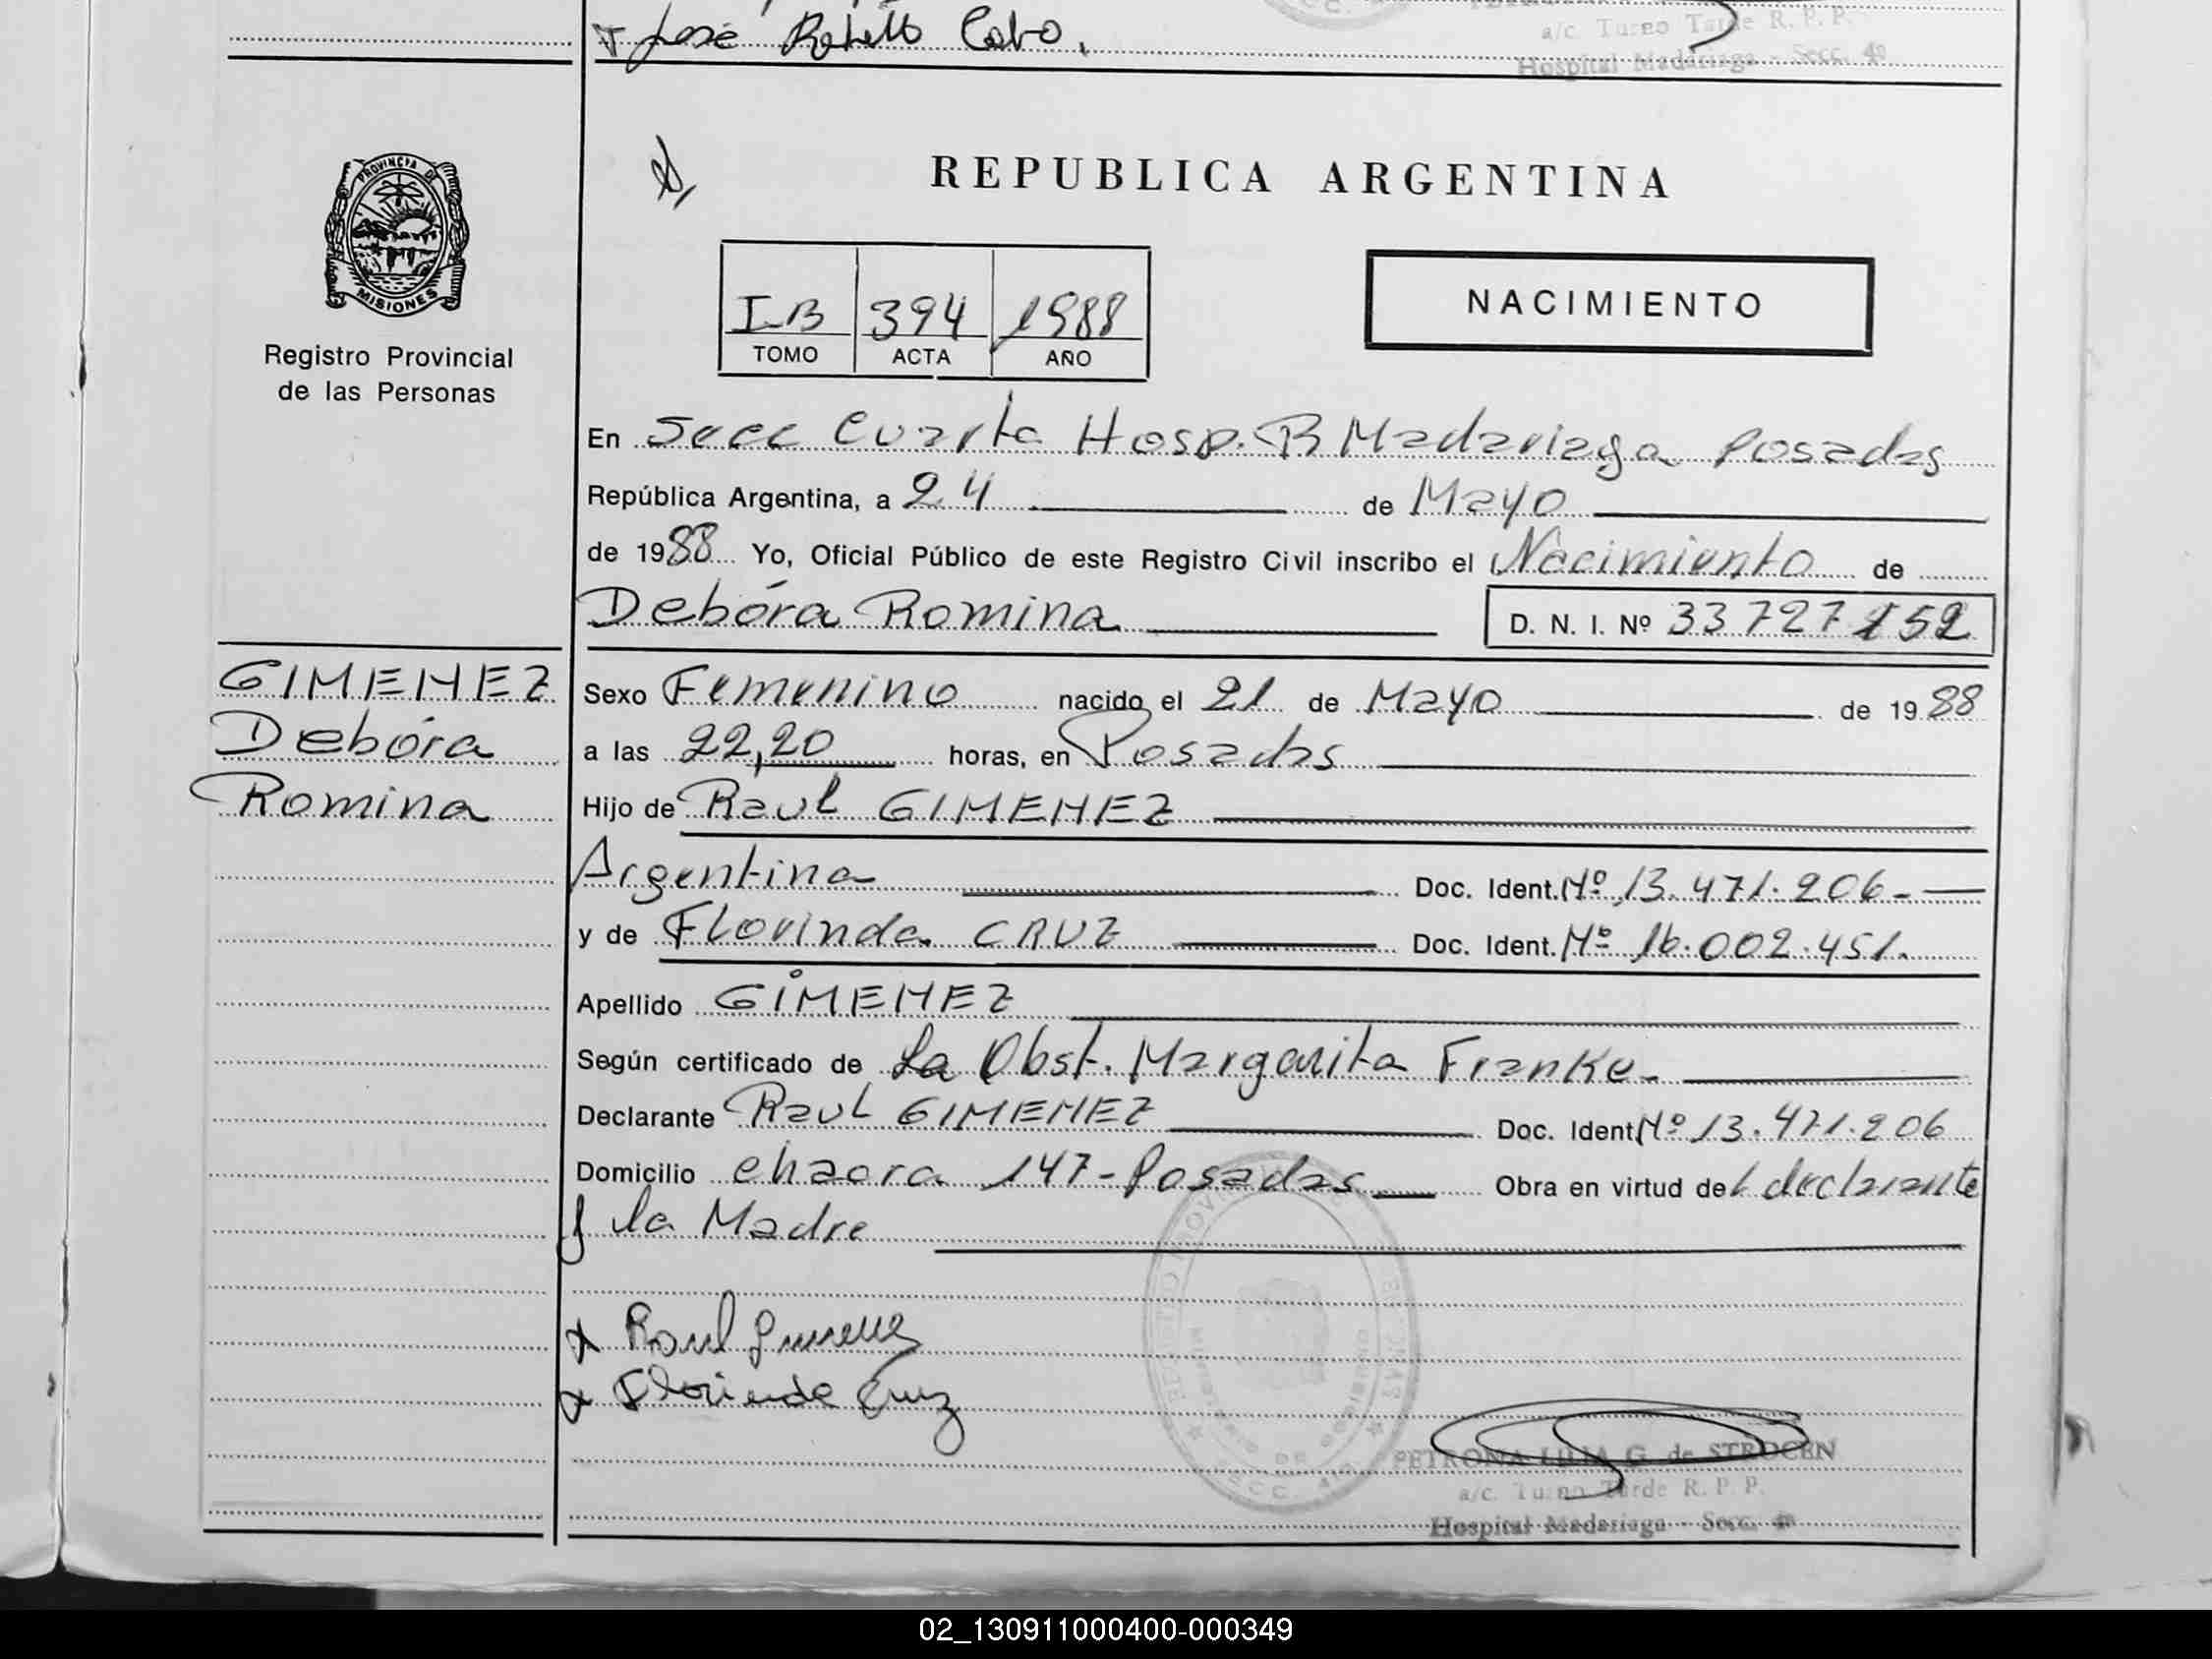 José Cabo.
a/c. Turno Tarde R. P. P.
Hospital Madariaga - Secc. 4ª
PROVINCIA DE
MISIONES
Registro Provincial
de las Personas
REPUBLICA ARGENTINA
I-B 394 1988
TOMO ACTA AÑO
NACIMIENTO
En Secc Cuarta Hosp. R Madariaga Posadas
República Argentina, a 24 de Mayo
de 1988 Yo, Oficial Público de este Registro Civil inscribo el Nacimiento de
Debóra Romina
D. N. I. Nº 33727152
GIMENEZ
Debóra
Romina
Sexo Femenino nacido el 21 de Mayo de 1988
a las 22,20 horas, en Posadas
Hijo de Raul GIMENEZ
Argentina Doc. Ident. Nº 13.471.206-
y de Florinda CRUZ Doc. Ident. Nº 16.002.451.
Apellido GIMENEZ
Según certificado de La Obst. Margarita Franke-
Declarante Raul GIMENEZ Doc. Ident Nº 13.471.206
Domicilio chacra 147-Posadas Obra en virtud del declarante
y la Madre
x Raul Gimenez
x Florinda Cruz
PETRONA LILIA G. de STROCEN
a/c. Turno Tarde R. P. P.
Hospital Madariaga - Secc. 4ª
02_130911000400-000349